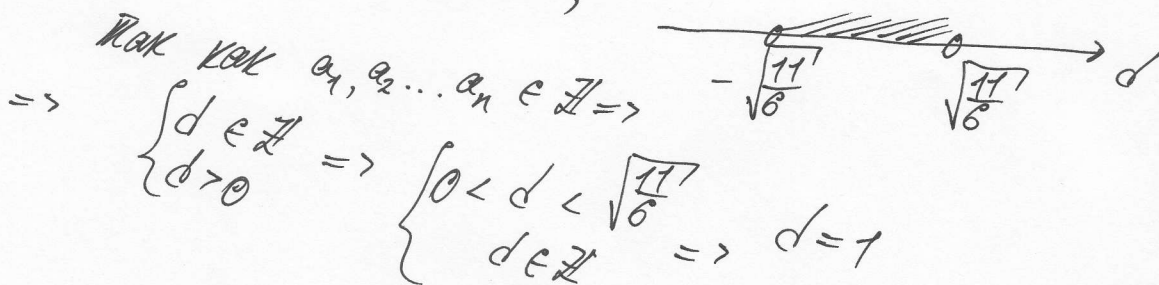 ,
Так как a₁, a₂... aₙ ∈ ℤ =>
-√(11/6) √(11/6) d
=> { d ∈ ℤ, d > 0 => { 0 < d < √(11/6), d ∈ ℤ => d = 1